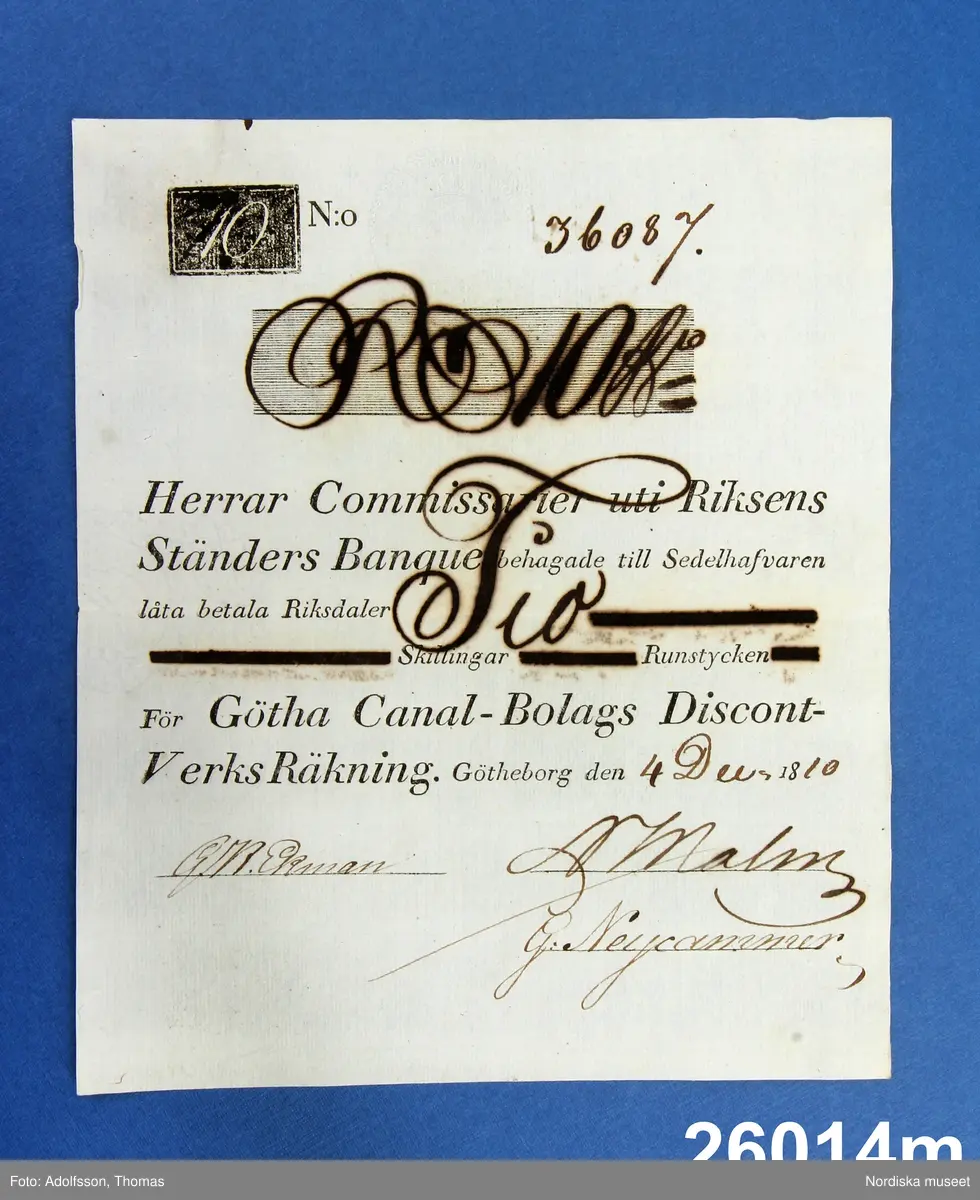 10 N:o 36087.
Rd 10 Bco
Herrar Commissarier uti Riksens
Ständers Banque behagade till Sedelhafvaren
låta betala Riksdaler Tio
Skillingar Runstycken
För Götha Canal-Bolags Discont-
Verks Räkning. Götheborg den 4 Dec. 1810
G. Neycammer
Malm
26014m
Foto: Adolfsson, Thomas Nordiska museet